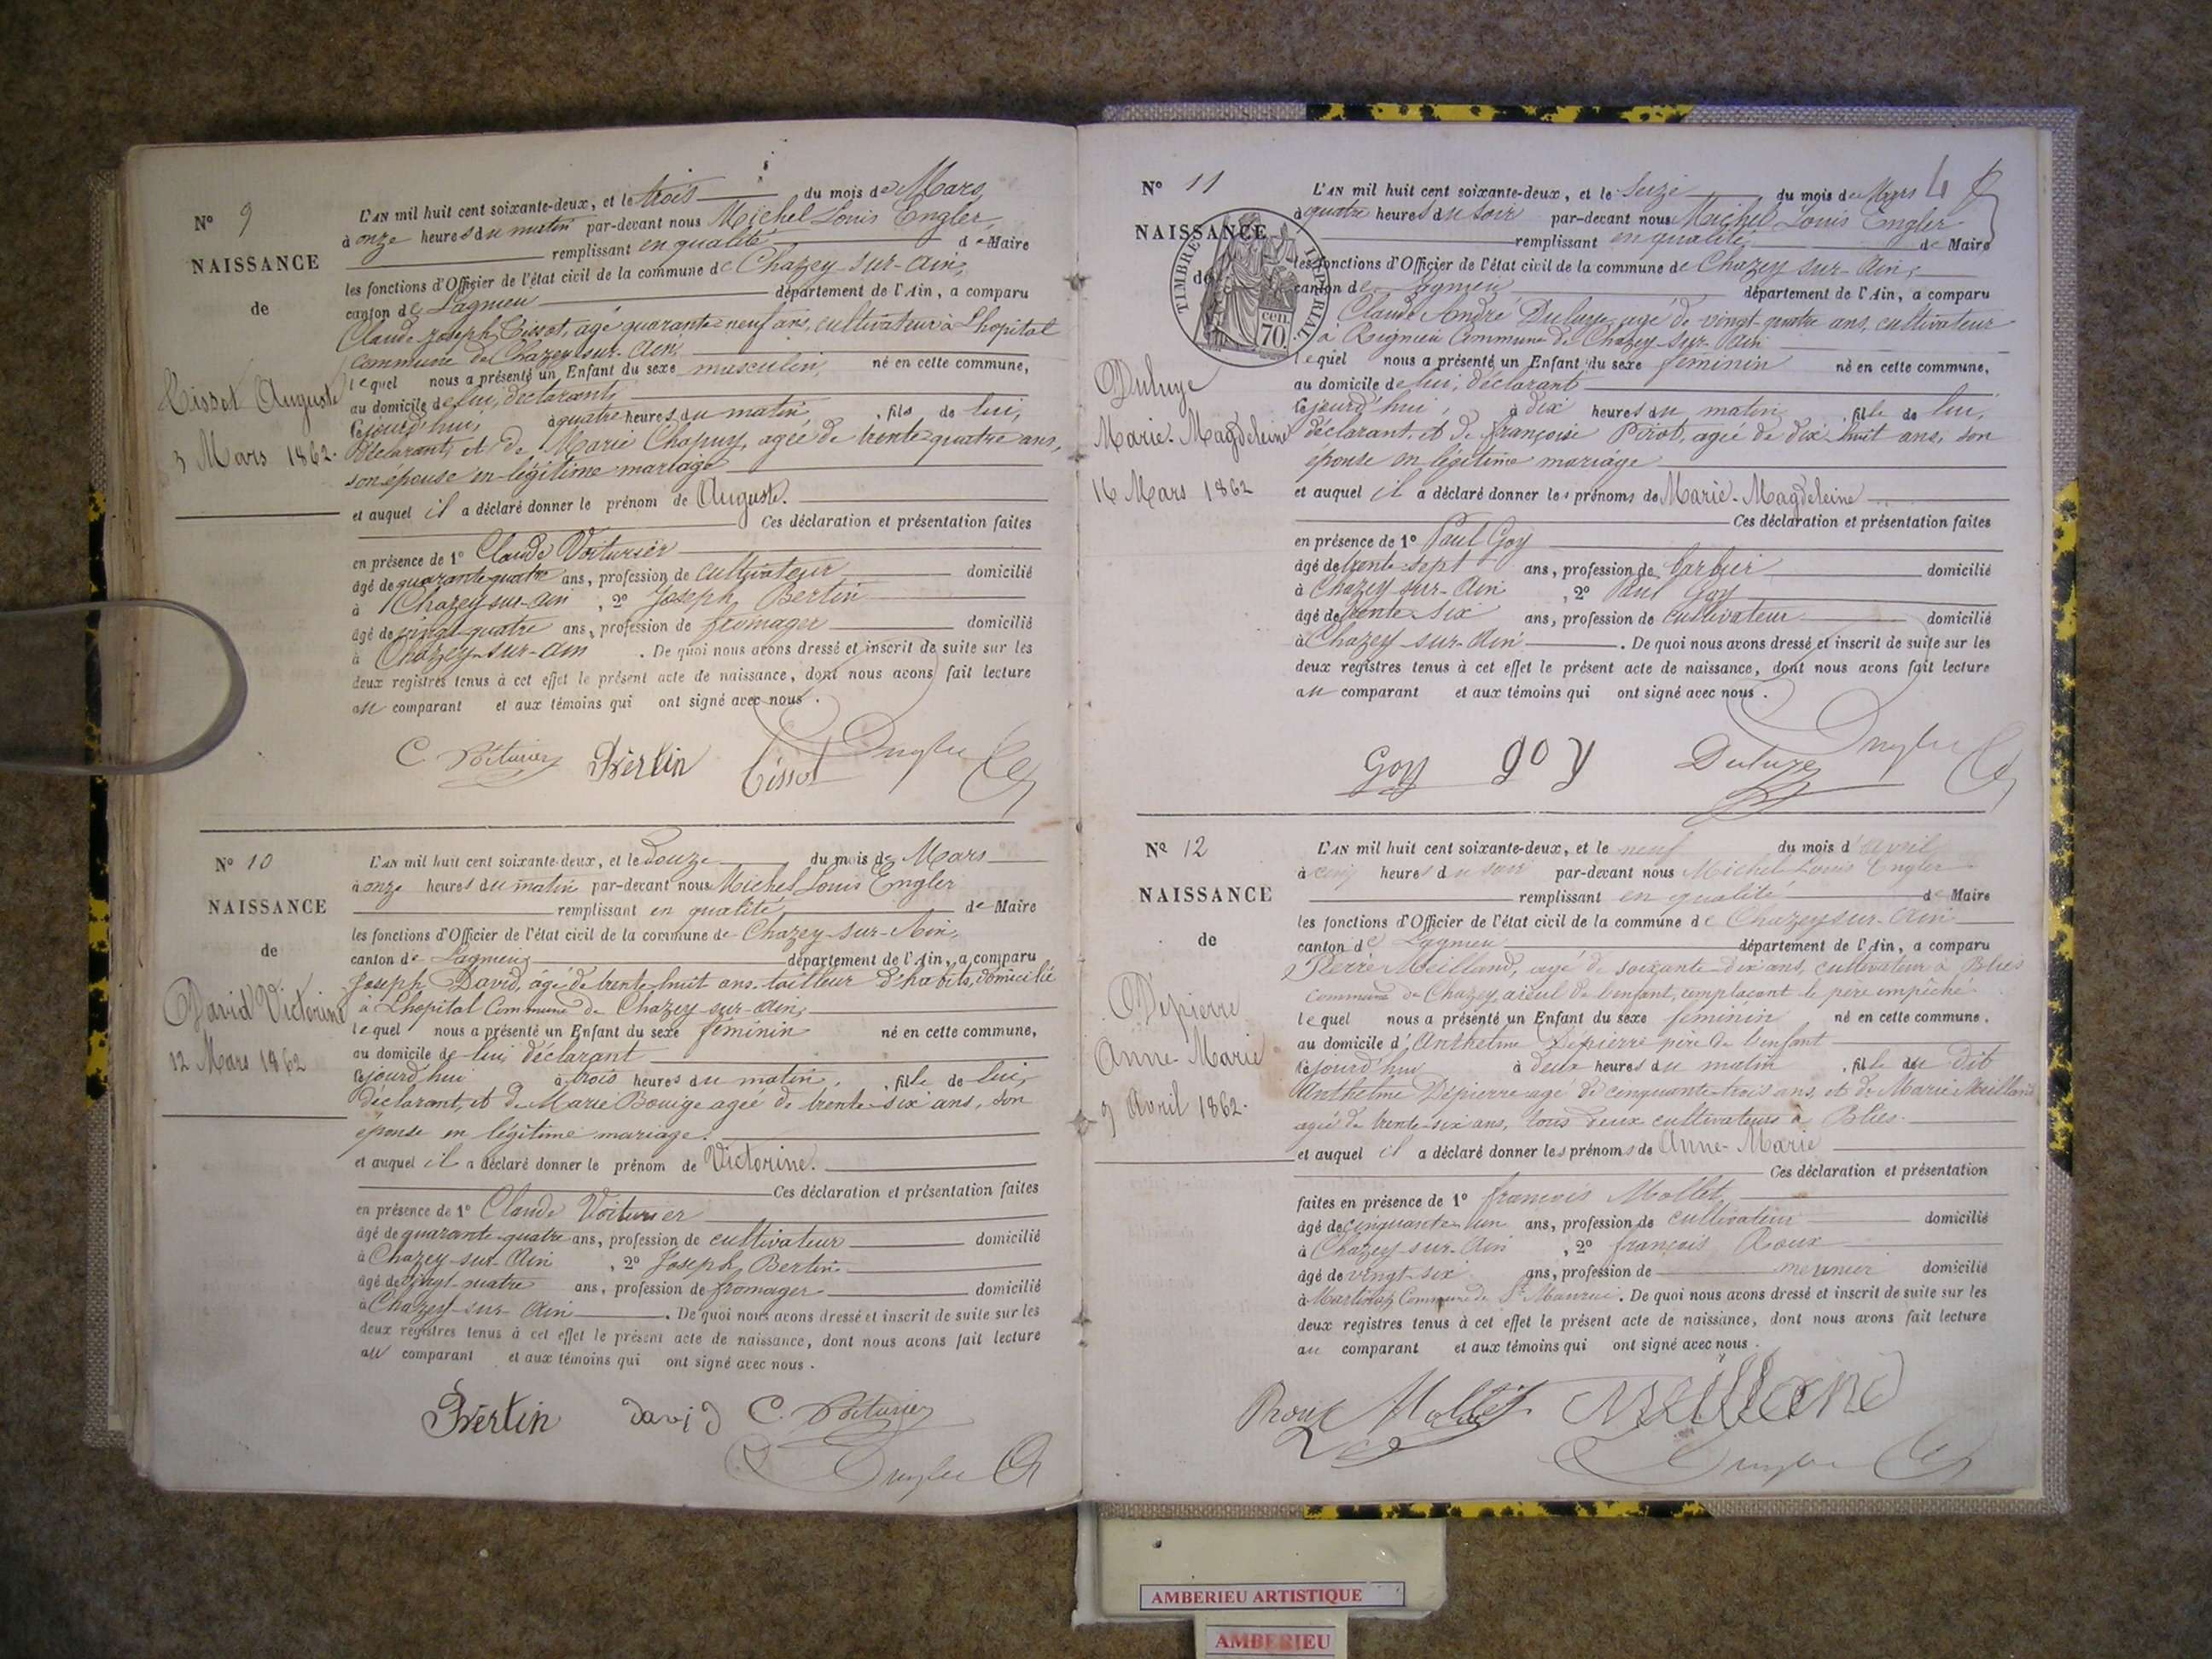 N° 9
NAISSANCE
de
Tissot Auguste
3 Mars 1862.
L'AN mil huit cent soixante-deux, et le trois du mois de Mars
à onze heures du matin par-devant nous Michel Louis Engler,
remplissant en qualité de Maire
les fonctions d'Officier de l'état civil de la commune de Chazey-sur-Ain,
canton de Lagnieu département de l'Ain, a comparu
Claude Joseph Tissot, agé quarante neuf ans, cultivateur à Lhopital
commune de Chazey-sur-Ain,
lequel nous a présenté un Enfant du sexe masculin, né en cette commune,
au domicile de lui, déclarant,
cejourd'hui, à quatre heures du matin, fils de lui,
déclarant, et de Marie Chapuy, agée de trente quatre ans,
son épouse en légitime mariage
et auquel il a déclaré donner le prénom de Auguste.
Ces déclaration et présentation faites
en présence de 1° Claude Voiturier
âgé de quarante quatre ans, profession de cultivateur domicilié
à Chazey-sur-Ain, 2° Joseph Bertin
âgé de vingt-quatre ans, profession de fromager domicilié
à Chazey-sur-Ain. De quoi nous avons dressé et inscrit de suite sur les
deux registres tenus à cet effet le présent acte de naissance, dont nous avons fait lecture
au comparant et aux témoins qui ont signé avec nous.
C. Voiturier Bertin Tissot Engler
N° 10
NAISSANCE
de
David Victorine
12 Mars 1862
L'AN mil huit cent soixante-deux, et le douze du mois de Mars
à onze heures du matin par-devant nous Michel Louis Engler
remplissant en qualité de Maire
les fonctions d'Officier de l'état civil de la commune de Chazey-sur-Ain,
canton de Lagnieu département de l'Ain, a comparu
Joseph David, âgé de trente-huit ans, tailleur d'habits, domicilié
à Lhopital Commune de Chazey-sur-Ain,
lequel nous a présenté un Enfant du sexe féminin né en cette commune,
au domicile de lui, déclarant
cejourd'hui à trois heures du matin, fille de lui,
déclarant, et de Marie Bouige agée de trente-six ans, son
épouse en légitime mariage.
et auquel il a déclaré donner le prénom de Victorine.
Ces déclaration et présentation faites
en présence de 1° Claude Voiturier
âgé de quarante-quatre ans, profession de cultivateur domicilié
à Chazey-sur-Ain, 2° Joseph Bertin
âgé de vingt-quatre ans, profession de fromager domicilié
à Chazey-sur-Ain. De quoi nous avons dressé et inscrit de suite sur les
deux registres tenus à cet effet le présent acte de naissance, dont nous avons fait lecture
au comparant et aux témoins qui ont signé avec nous.
Bertin david C. Voiturier
Engler
N° 11
NAISSANCE
de
TIMBRE IMPERIAL
70 cen.
Duluye
Marie-Magdeleine
16 Mars 1862
L'AN mil huit cent soixante-deux, et le seize du mois de Mars 4
à quatre heures du soir par-devant nous Michel Louis Engler
remplissant en qualité de Maire
les fonctions d'Officier de l'état civil de la commune de Chazey sur-Ain,
canton de Lagnieu département de l'Ain, a comparu
Claude André Duluye agé de vingt-quatre ans, cultivateur
à Rignieu Commune de Chazey-sur-Ain
lequel nous a présenté un Enfant du sexe féminin né en cette commune,
au domicile de lui, déclarant
cejourd'hui, à dix heures du matin, fille de lui,
déclarant, et de françoise Pirot, agée de dix-huit ans, son
épouse en légitime mariage
et auquel il a déclaré donner les prénoms de Marie-Magdeleine
Ces déclaration et présentation faites
en présence de 1° Paul Goy
âgé de trente-sept ans, profession de barbier domicilié
à Chazey-sur-Ain, 2° Paul Goy
âgé de trente-six ans, profession de cultivateur domicilié
à Chazey-sur-Ain. De quoi nous avons dressé et inscrit de suite sur les
deux registres tenus à cet effet le présent acte de naissance, dont nous avons fait lecture
au comparant et aux témoins qui ont signé avec nous.
Goy goy Duluye Engler
N° 12
NAISSANCE
de
Dépierre
Anne-Marie
9 Avril 1862.
L'AN mil huit cent soixante-deux, et le neuf du mois d'avril
à cinq heures du soir par-devant nous Michel Louis Engler
remplissant en qualité de Maire
les fonctions d'Officier de l'état civil de la commune de Chazey sur-Ain
canton de Lagnieu département de l'Ain, a comparu
Pierre Meilland, agé de soixante-dix ans, cultivateur à Blies
commune de Chazey, aieul de l'enfant, remplaçant le père empéché
lequel nous a présenté un Enfant du sexe féminin né en cette commune,
au domicile d'Anthelme Dépierre père de l'enfant
cejourd'hui à deux heures du matin, fille du dit
Anthelme Dépierre agé de cinquante-trois ans, et de Marie Meilland
agée de trente-six ans, tous deux cultivateurs à Blies.
et auquel il a déclaré donner les prénoms de Anne-Marie
Ces déclaration et présentation
faites en présence de 1° françois Mollet
âgé de cinquante un ans, profession de cultivateur domicilié
à Chazey-sur-Ain, 2° françois Roux
âgé de vingt-six ans, profession de meunier domicilié
à Martinaz Commune de St Maurice. De quoi nous avons dressé et inscrit de suite sur les
deux registres tenus à cet effet le présent acte de naissance, dont nous avons fait lecture
au comparant et aux témoins qui ont signé avec nous.
Roux Mollet Meilland
Engler
AMBERIEU ARTISTIQUE
AMBERIEU